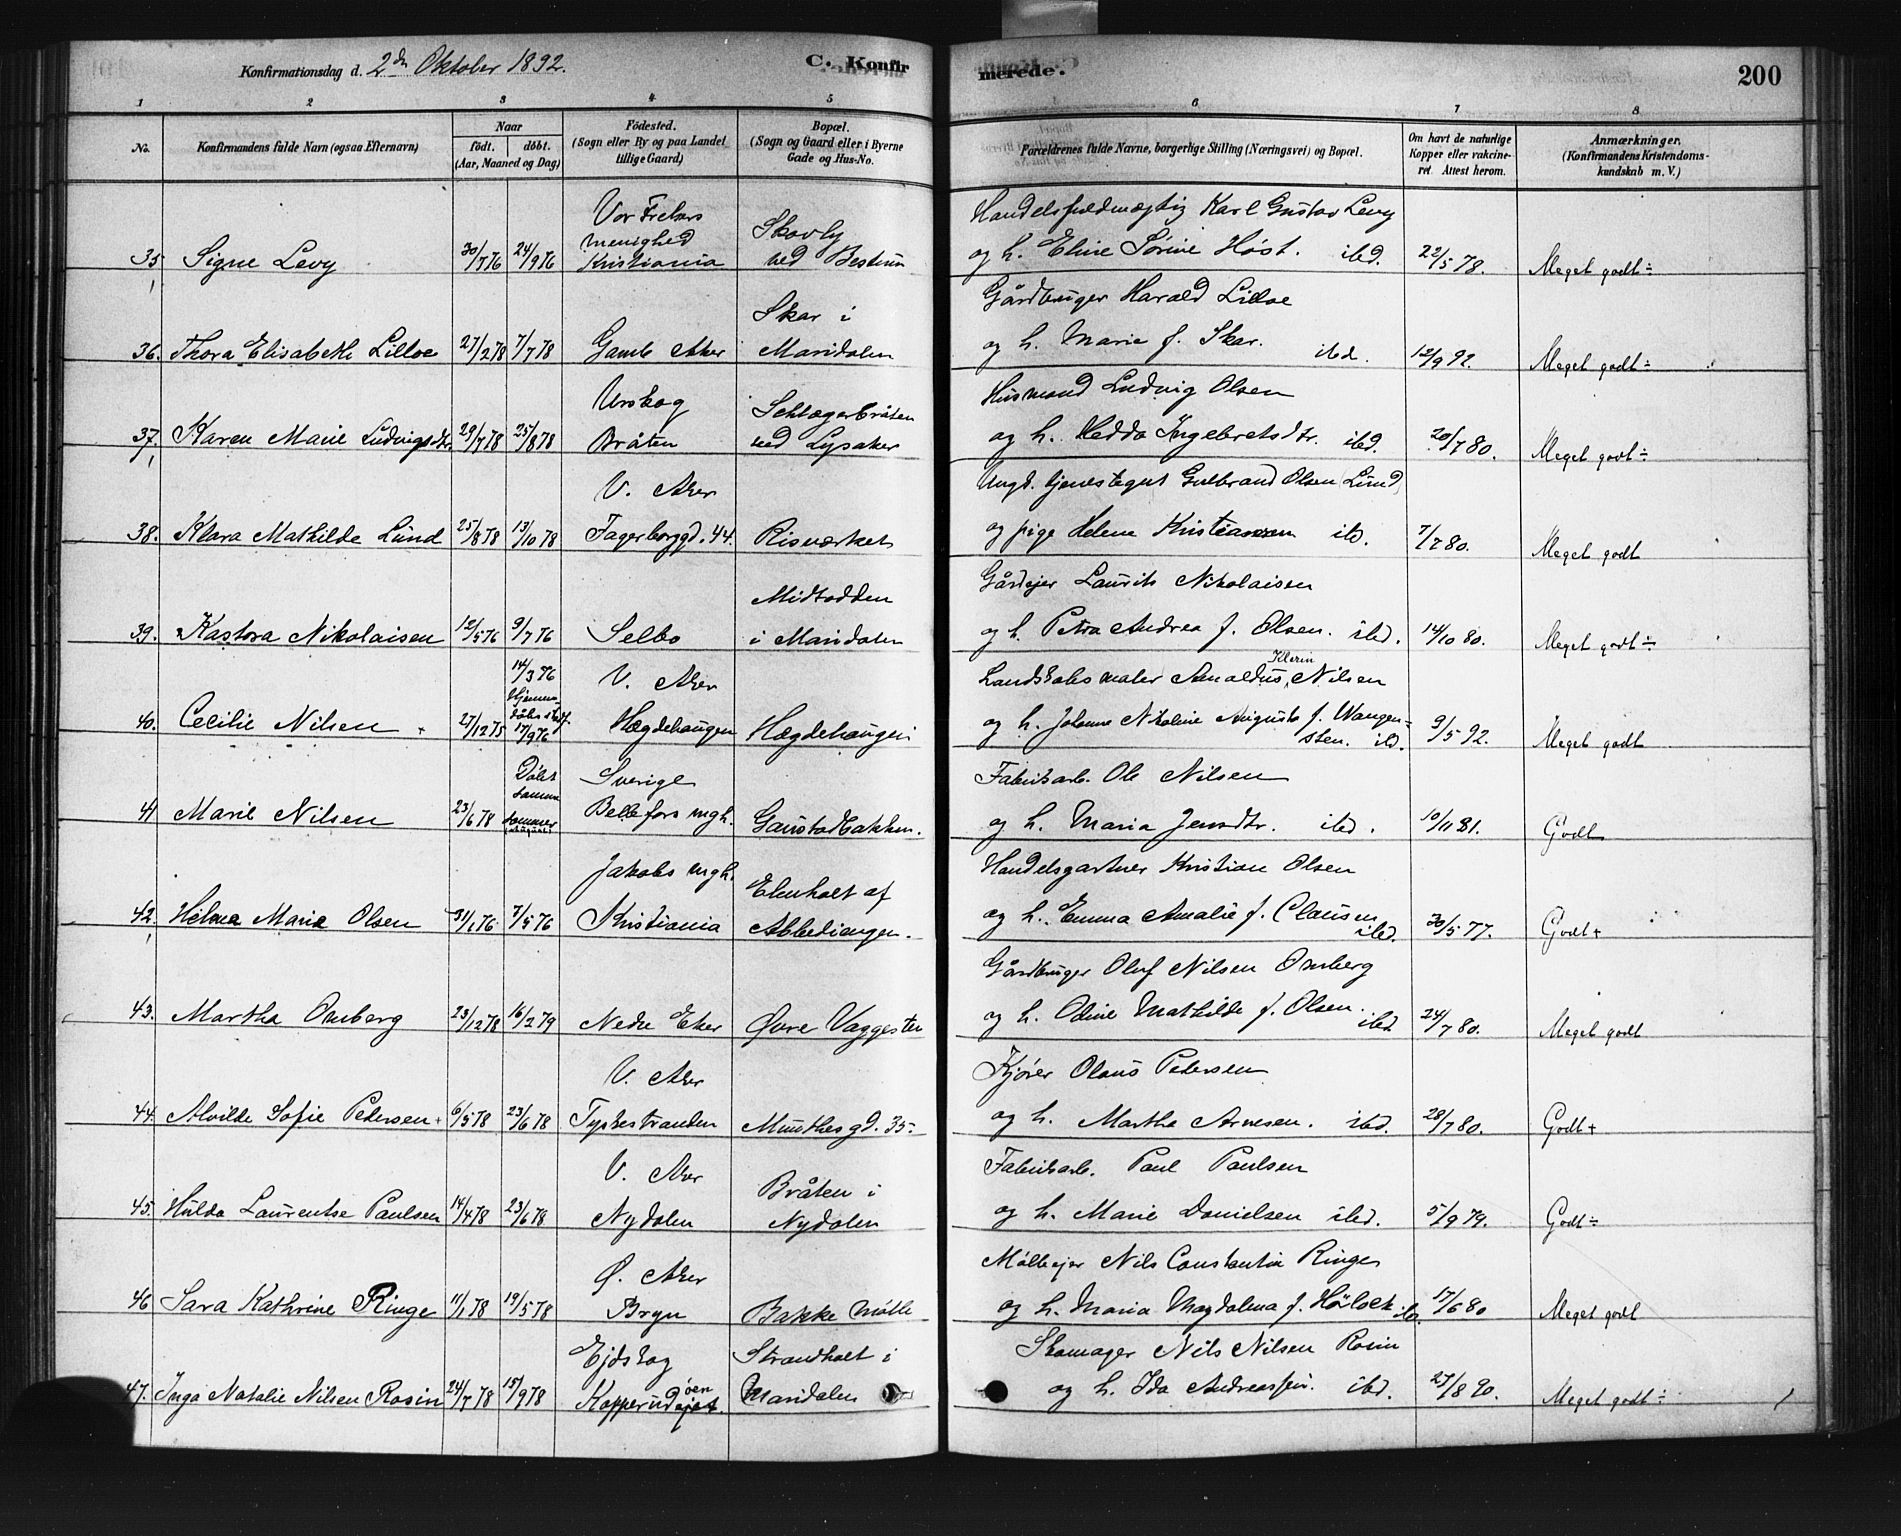 Konfirmationsdag d. 2den Oktober 1892.
C. Konfirmerede.
200
1 2 3 4 5 6 7 8
No.
Konfirmandens fulde Navn (ogsaa Efternavn)
Naar
født. døbt.
(Aar, Maaned og Dag)
Fødested.
(Sogn eller By og paa Landet
tillige Gaard)
Bopæl.
(Sogn og Gaard eller i Byerne
Gade og Hus-No.
Forældrenes fulde Navne, borgerlige Stilling (Næringsvei) og Bopæl.
Om havt de naturlige
Kopper eller vakcine-
ret. Attest herom.
Anmærkninger.
(Konfirmandens Kristendoms-
kundskab m. V.)
Vor Frelsers
menighed
Skovly
Handelsfuldmægtig Karl Gustav Levy
35 Signe Levy 30/7 76 24/9 76 Kristiania ved Bestum og h. Eline Sørine Høst. ibd. 22/5 78. Meget godt÷
Skar i
Gårdbruger Harald Lilloe
36. Thora Elisabeth Lilloe 27/2 78 7/7 78 Gamle Aker Maridalen og h. Marie f. Skar. ibd. 12/9 92. Meget godt÷
Urskog
Husmand Ludvig Olsen
37. Karen Marie Ludvigsdtr. 29/7 78 25/8 78 Bråten ved Lysaker og h. Hedda Ingebretsdtr. ibd. 20/7 80. Meget godt÷
V. Aker
Ungk. tjenestegut Gulbrand Olsen (Lund)
38. Klara Mathilde Lund 25/8 78 13/10 78 Fagerborggd. 44. Risværket og pige Helene Kristiansen ib. 7/7 80. Meget godt
Midtodden
Gårdejer Laurits Nikolaisen
39. Kastora Nikolaisen 12/5 76 9/7 76 Selbo i Maridalen og h. Petra Andrea f. Olsen. ibd. 14/10 80. Meget godt÷
14/3 76
V. Aker
Landskabsmaler Amaldus Klerin Nilsen
40. Cecilie Nilsen + 27/12 75 17/9 76 Hægdehaugen Hægdehaugen og h. Johanne Nikoline Augusta f. Wangen-
sten. ib. 9/5 92. Meget godt
Døbt
samme
Sverige
Fabriksarb. Ole Nilsen
41 Marie Nilsen 23/6 78 sommer Bellefors mgh. Gaustadbakken. og h. Maria Jensdtr. ibd. 10/11 81. Godt
Jakobs mgh.
Ekenholt af
Handelsgartner Kristian Olsen
42. Helma Marie Olsen 31/1 76 7/5 76 Kristiania Abbediengen. og h. Emma Amalie f. Clausen ibd. 30/5 77. Godt+
Gårdbruger Oluf Nilsen Omberg
43. Martha Omberg 23/12 78 16/2 79 Nedre Eker Øvre Vaggesten og h. Odine Mathilde f. Olsen. ibd 24/7 80. Meget godt
V. Aker
Kjører Olaus Petersen
44. Alvilde Sofie Petersen + 6/5 78 23/6 78 Tyskestranden Munthesgd. 35. og h. Martha Arnesen. ibd. 28/7 80. Godt+
V. Aker
Bråten i
Fabriksarb. Paul Paulsen
45. Hulda Laurentse Paulsen 14/4 78 23/6 78 Nydalen Nydalen og h. Marie Danielsen ibd. 5/9 79. Godt÷
Ø. Aker
Mølleejer Nils Constantin Ringe
46 Sara Kathrine Ringe 11/1 78 19/5 78 Bryn Bakke mølle og h. Maria Magdalena f. Hørlock ib. 17/6 80 Meget godt
Ejdskog
Strandholt i
Skomager Nils Nilsen Rosin
47. Inga Natalie Nilsen Rosin 24/7 78 15/9 78 Maridalen og h. Ida Andreassen. ibd. 27/8 90. Meget godt÷